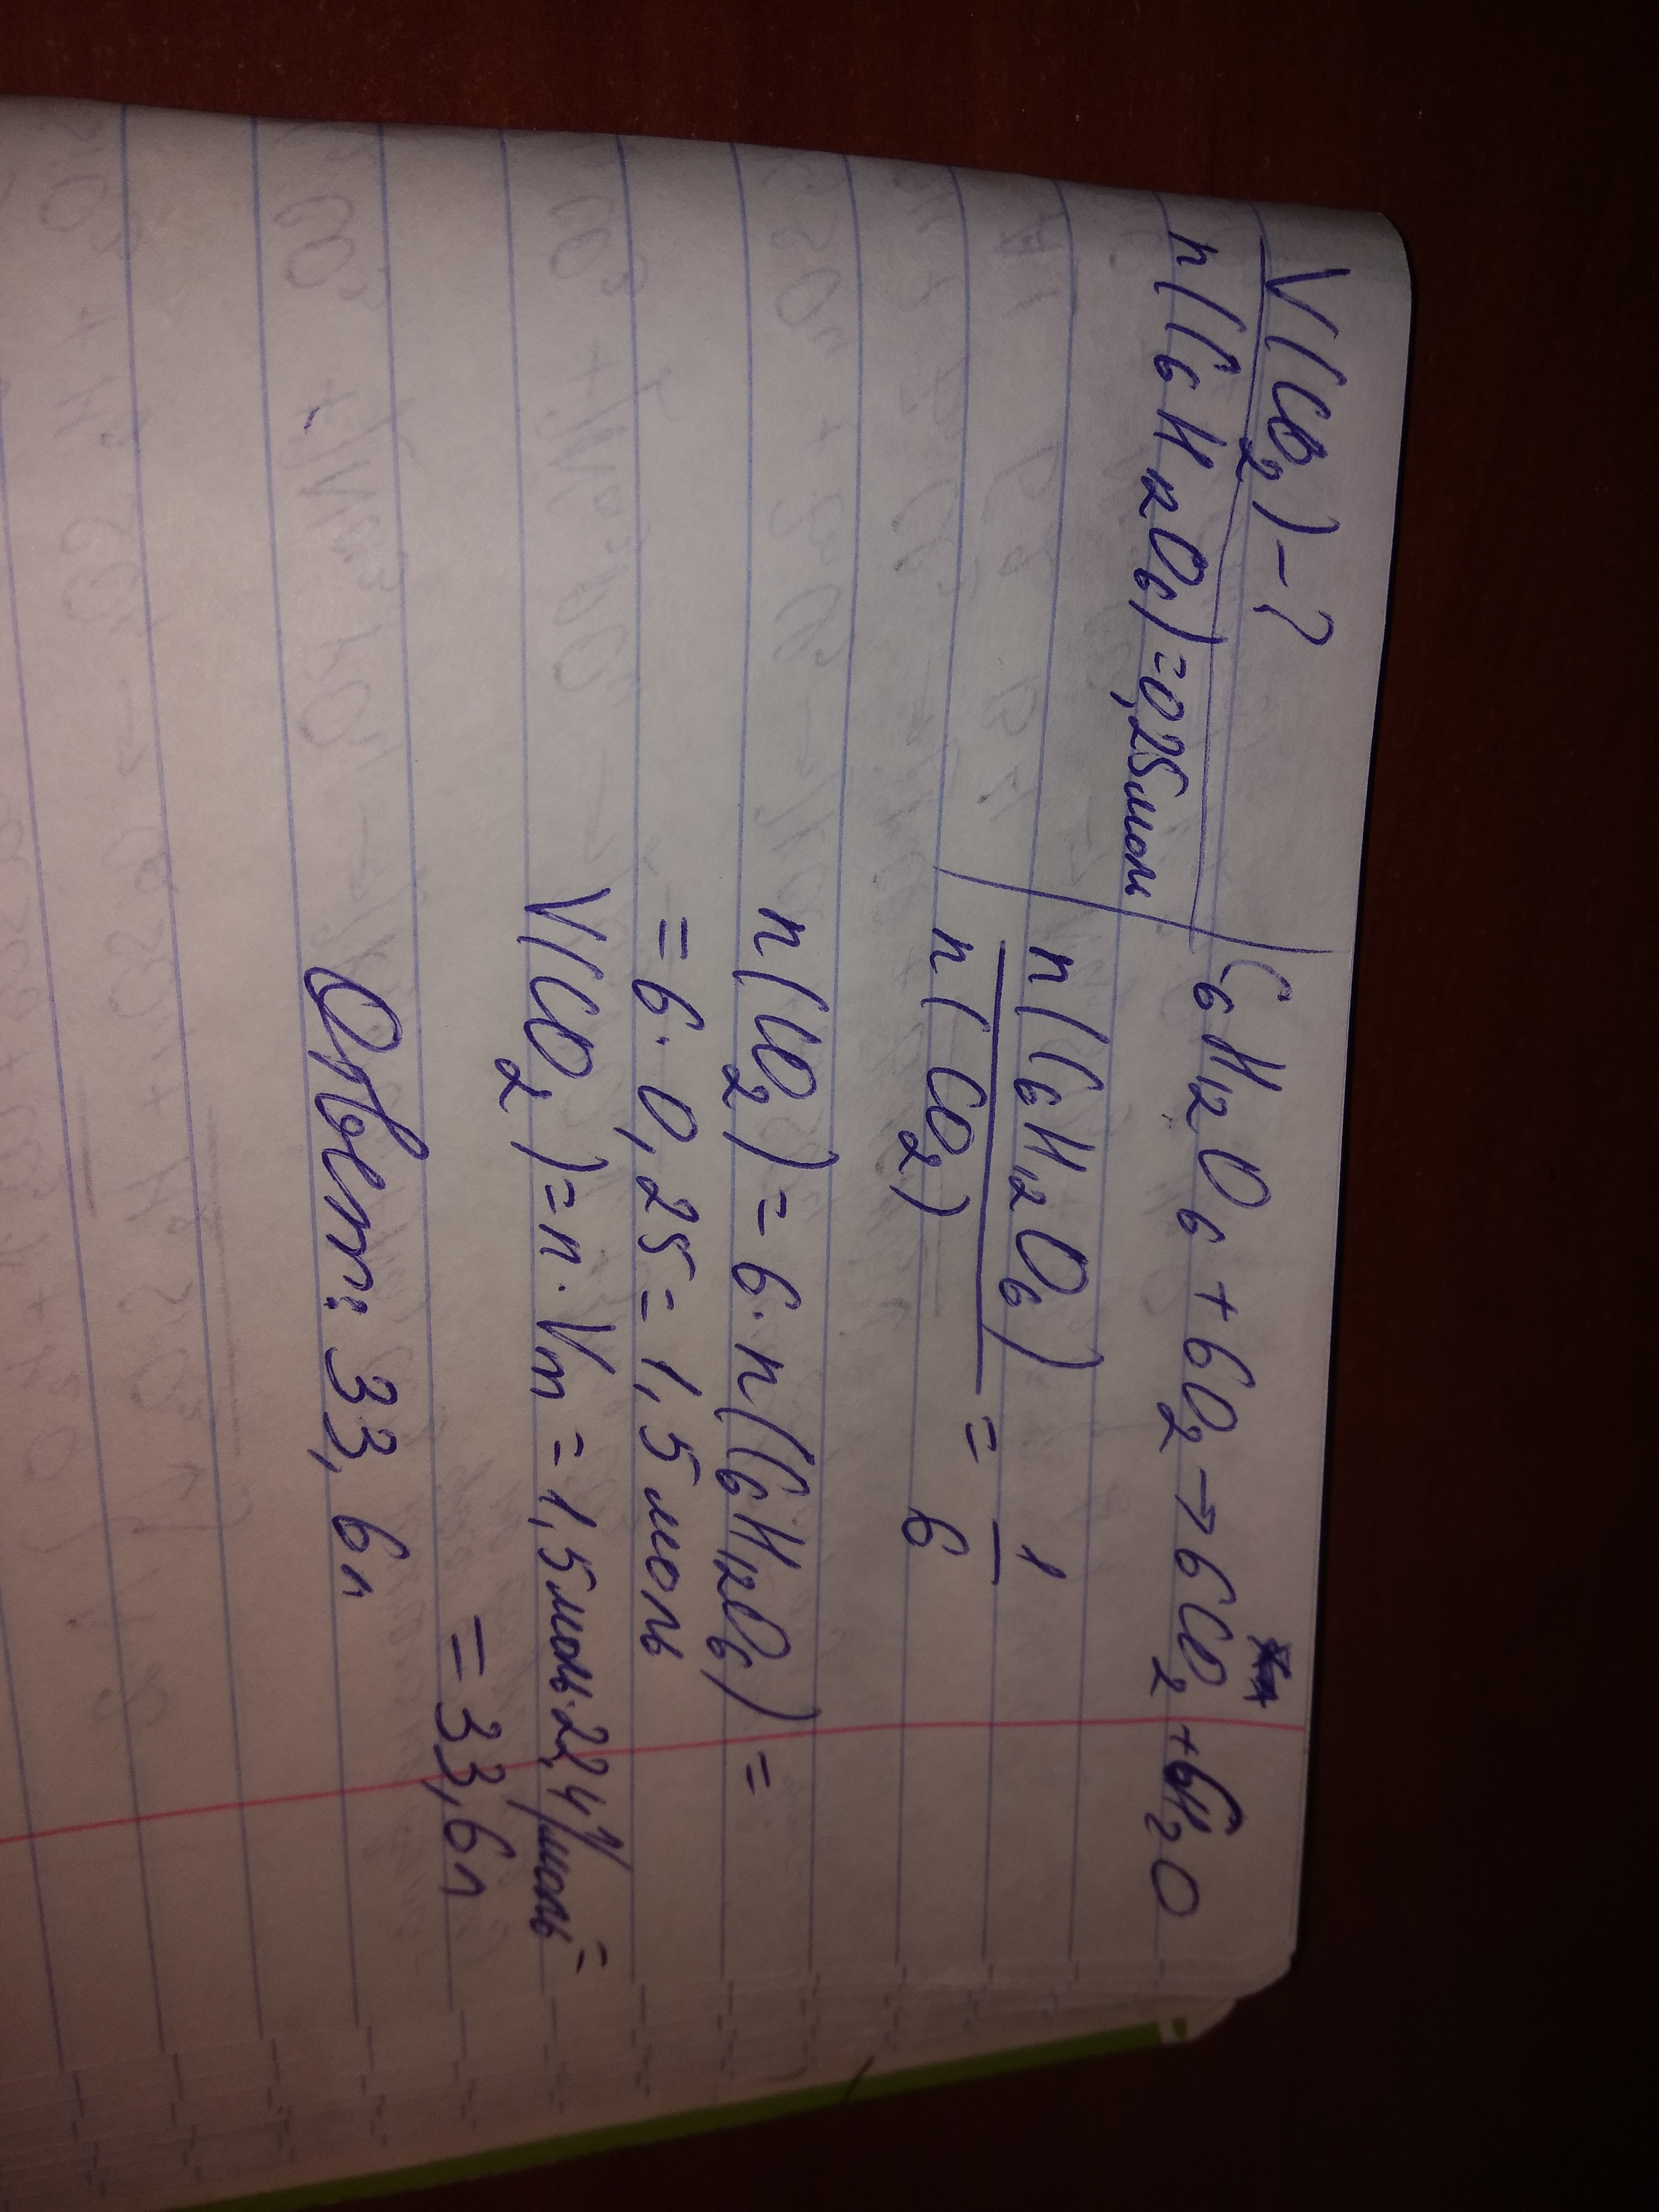 V(CO₂)-?
n(C₆H₁₂O₆)=0,25моль
C₆H₁₂O₆+6O₂→6CO₂+6H₂O
n(C₆H₁₂O₆) = 1
n(CO₂) 6
n(CO₂)=6·n(C₆H₁₂O₆)=
=6·0,25=1,5моль
V(CO₂)=n·Vm=1,5моль·22,4л/моль=
=33,6л
Ответ: 33,6л